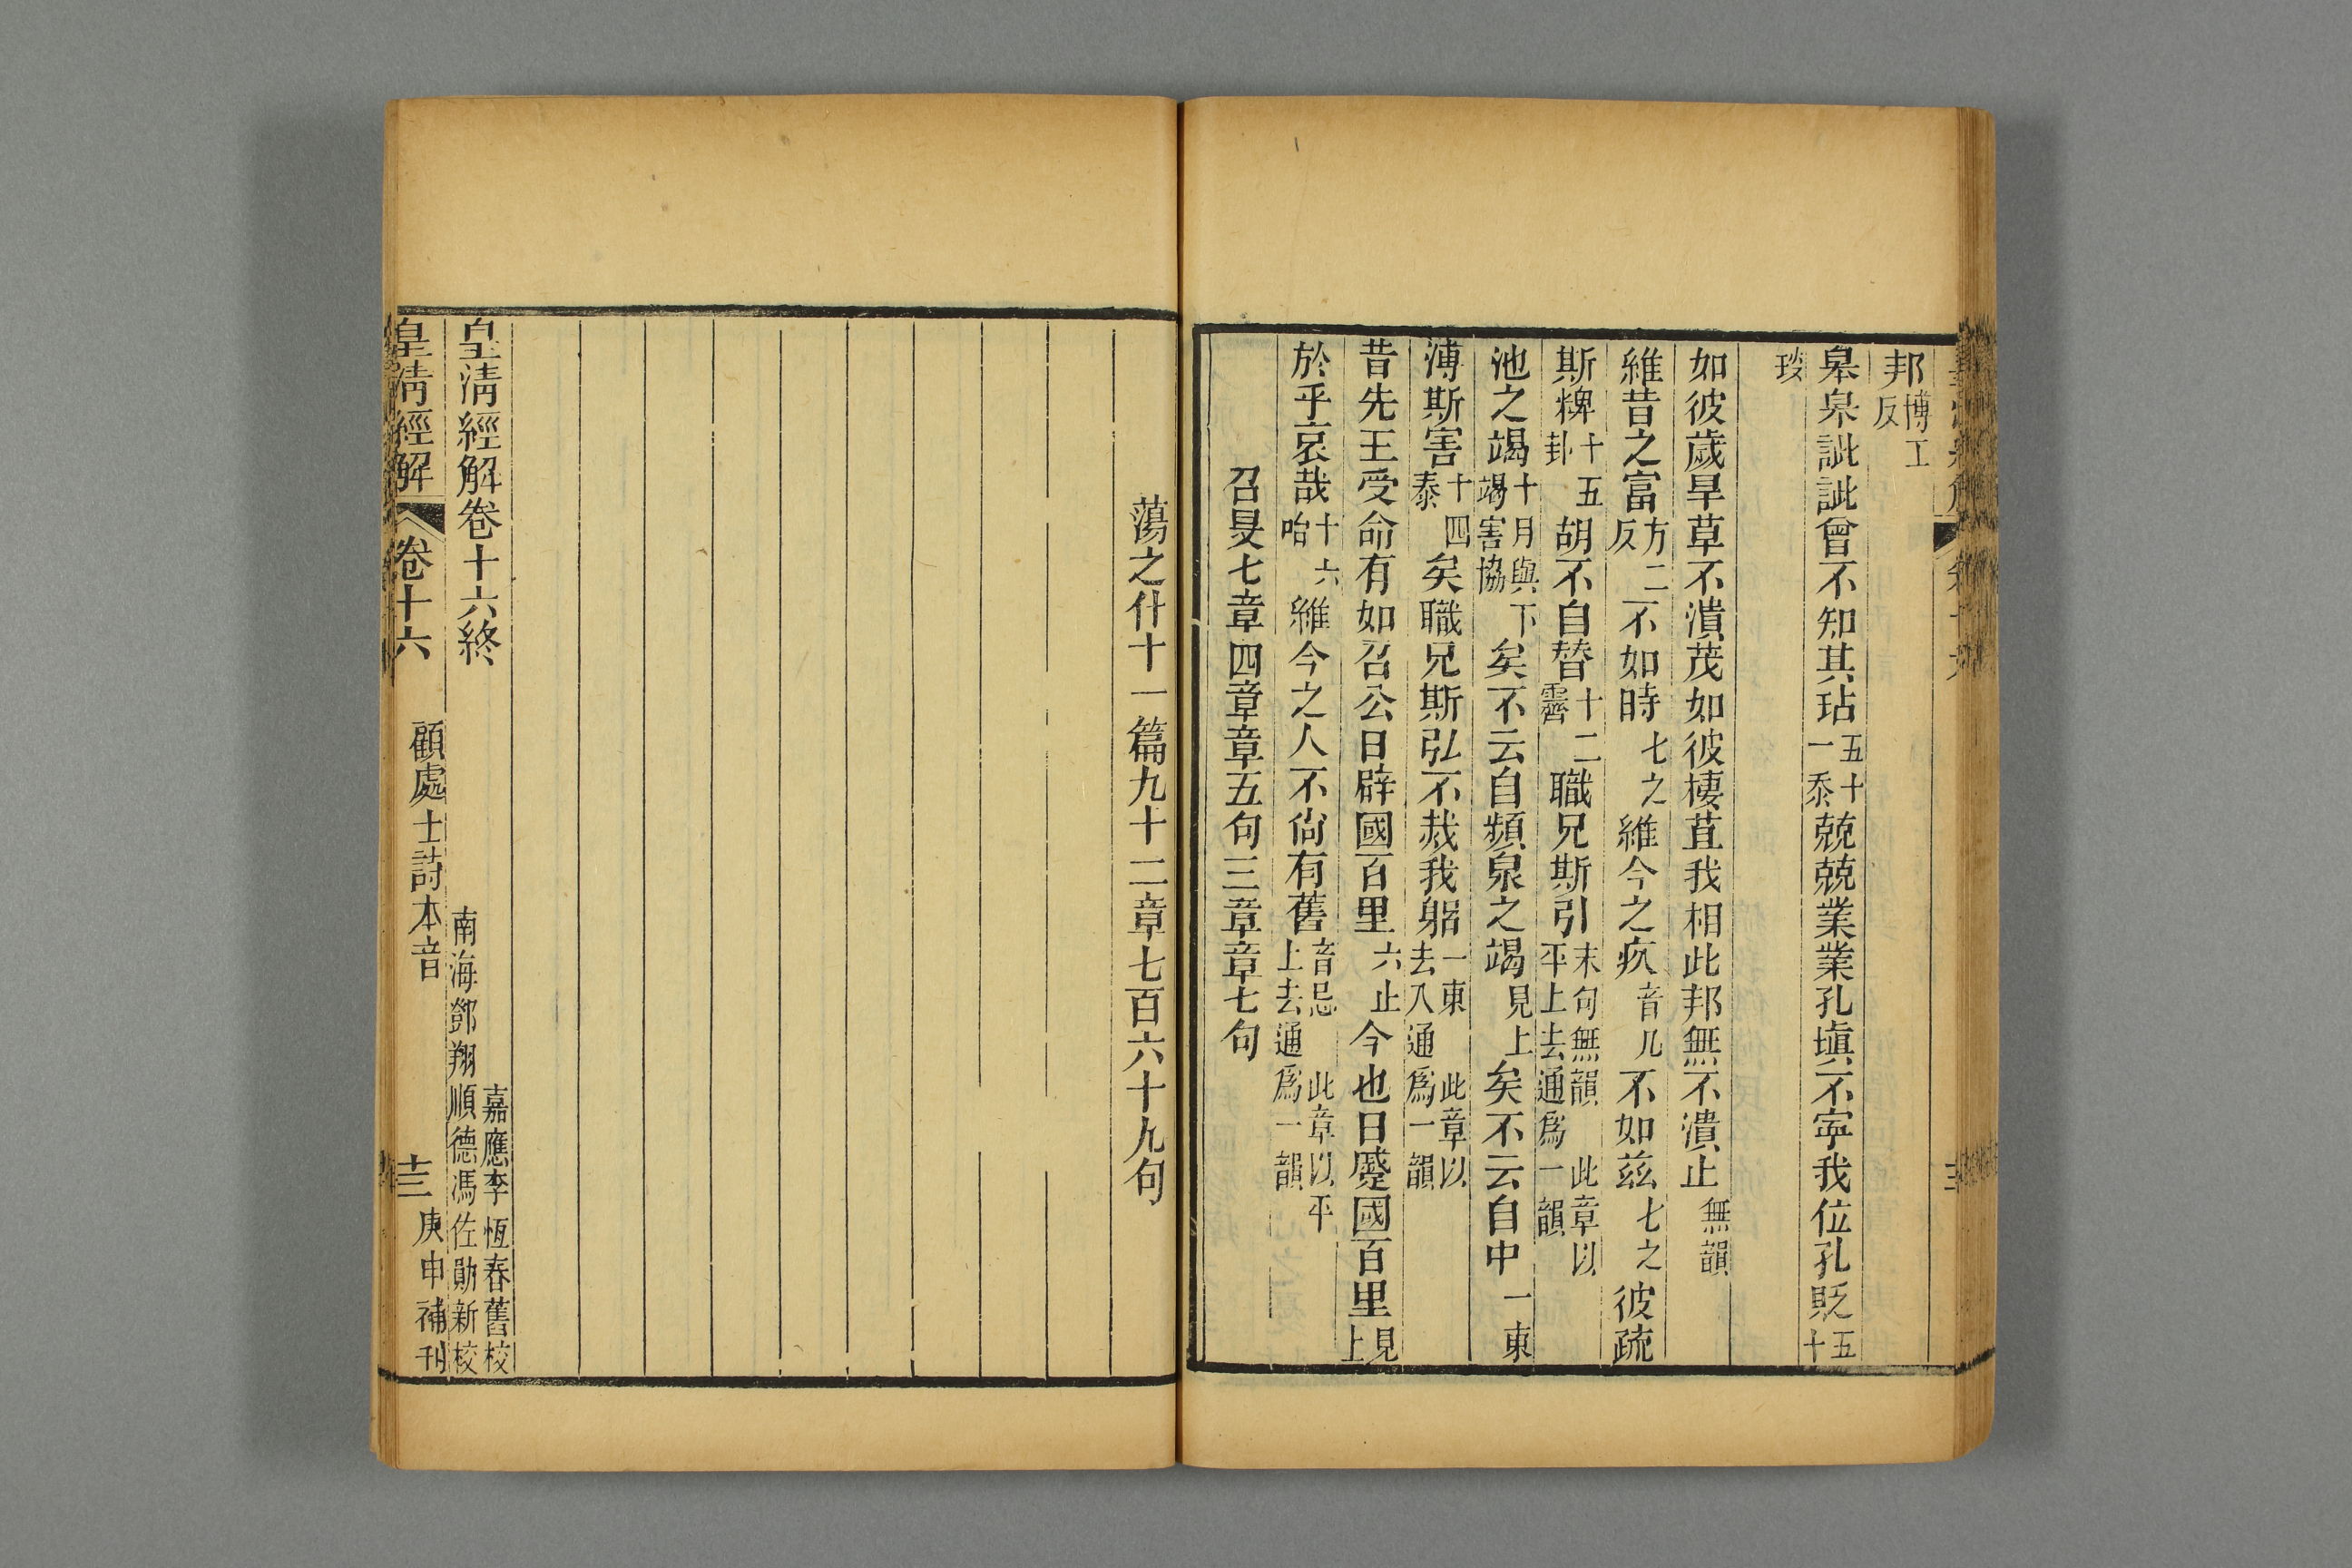 邦博工反
皋皋訿訿曾不知其玷五十一忝兢兢業業孔塡不寧我位孔貶五十
琰
如彼歲旱草不潰茂如彼棲苴我相此邦無不潰止無韻
維昔之富方二反不如時七之維今之疚音几不如茲七之彼疏
斯粺十五卦胡不自替十二霽職兄斯引末句無韻此章以平上去通爲一韻
池之竭十月與竭害協下矣不云自頻泉之竭見上矣不云自中一東
溥斯害十四泰矣職兄斯弘不烖我躬一東此章以去入通爲一韻
昔先王受命有如召公日辟國百里六止今也日蹙國百里見上
於乎哀哉十六咍維今之人不尙有舊音忌此章以平上去通爲一韻
召旻七章四章章五句三章章七句
蕩之什十一篇九十二章七百六十九句
皇淸經解卷十六終
嘉應李恆春舊校
南海鄧翔順德馮佐勛新校
皇淸經解 卷十六 顧處士詩本音 十三 庚申補刊